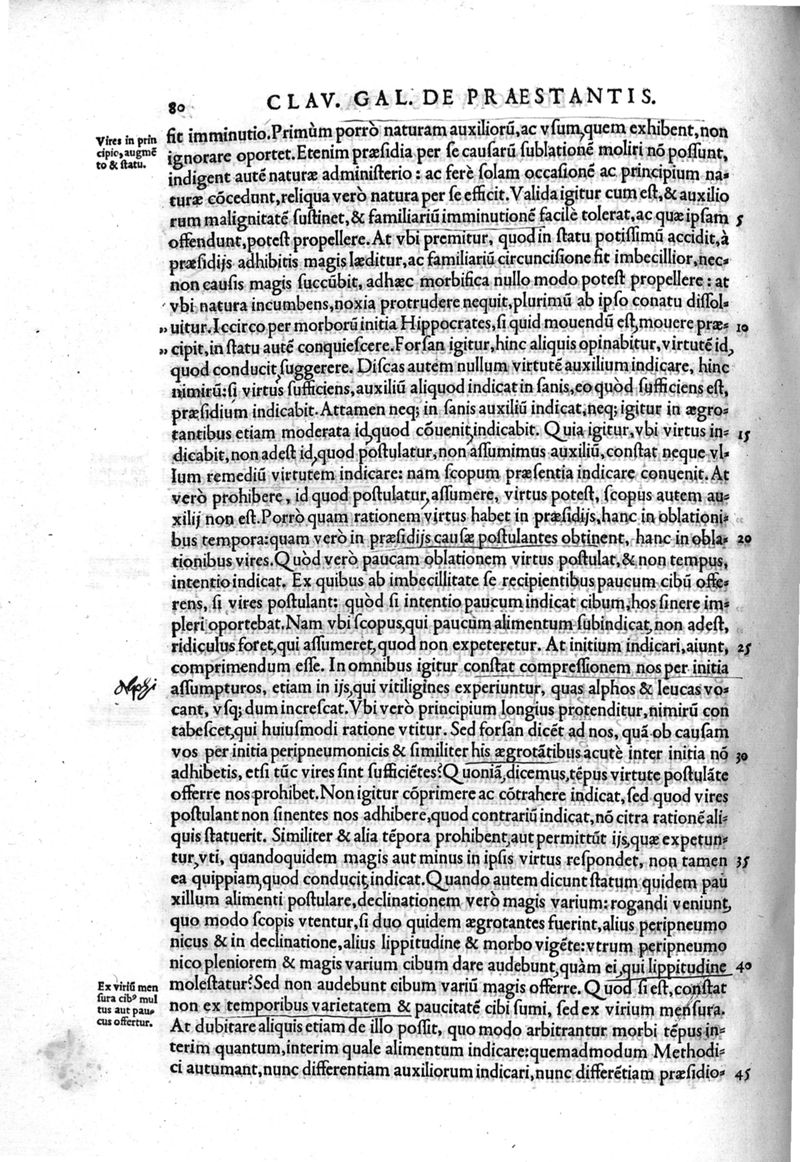 80 CLAV. GAL. DE PRAESTANTIS.
Vires in prin
cipio, augmē
to & statu.
fit imminutio. Primùm porrò naturam auxiliorū, ac vsum, quem exhibent, non
ignorare oportet. Etenim præsidia per se causarū sublationē moliri nō possunt,
indigent autē naturæ administerio: ac ferè solam occasionē ac principium na-
turæ cōcedunt, reliqua verò natura per se efficit. Valida igitur cum est, & auxilio
rum malignitatē sustinet, & familiariū imminutionē facilè tolerat, ac quæ ipsam 5
offendunt, potest propellere. At vbi premitur, quod in statu potissimū accidit, à
præsidijs adhibitis magis læditur, ac familiariū circuncisione fit imbecillior, nec-
non causis magis succūbit, adhæc morbifica nullo modo potest propellere: at
vbi natura incumbens, noxia protrudere nequit, plurimū ab ipso conatu dissol-
„uitur. Iccirco per morborū initia Hippocrates, si quid mouendū est, mouere præ- 10
„cipit, in statu autē conquiescere. Forsan igitur, hinc aliquis opinabitur, virtutē id,
quod conducit, suggerere. Discas autem nullum virtutē auxilium indicare, hinc
nimirū: si virtus sufficiens, auxiliū aliquod indicat in sanis, eo quòd sufficiens est,
præsidium indicabit. Attamen neq; in sanis auxiliū indicat, neq; igitur in ægro-
tantibus etiam moderata id, quod cōuenit, indicabit. Quia igitur, vbi virtus in- 15
dicabit, non adest id, quod postulatur, non assumimus auxiliū, constat neque vl-
lum remediū virtutem indicare: nam scopum præsentia indicare conuenit. At
verò prohibere, id quod postulatur, assumere, virtus potest, scopus autem au-
xilij non est. Porrò quam rationem virtus habet in præsidijs, hanc in oblationi-
bus tempora: quam verò in præsidijs causæ postulantes obtinent, hanc in obla- 20
tionibus vires. Quòd verò paucam oblationem virtus postulat, & non tempus,
intentio indicat. Ex quibus ab imbecillitate se recipientibus paucum cibū offe-
rens, si vires postulant: quòd si intentio paucum indicat cibum, hos sinere im-
pleri oportebat. Nam vbi scopus, qui paucum alimentum subindicat, non adest,
ridiculus foret, qui assumeret, quod non expeteretur. At initium indicari, aiunt, 25
comprimendum esse. In omnibus igitur constat compressionem nos per initia
alphi
assumpturos, etiam in ijs, qui vitiligines experiuntur, quas alphos & leucas vo-
cant, vsq; dum increscat. Vbi verò principium longius protenditur, nimirū con
tabescet, qui huiusmodi ratione vtitur. Sed forsan dicēt ad nos, quā ob causam
vos per initia peripneumonicis & similiter his ægrotātibus acutè inter initia nō 30
adhibetis, etsi tūc vires sint sufficiētes? Quoniā, dicemus, tēpus virtute postulāte
offerre nos prohibet. Non igitur cōprimere ac cōtrahere indicat, sed quod vires
postulant non sinentes nos adhibere, quod contrariū indicat, nō citra rationē ali-
quis statuerit. Similiter & alia tēpora prohibent, aut permittūt ijs, quæ expetun-
tur, vti, quandoquidem magis aut minus in ipsis virtus respondet, non tamen 35
ea quippiam, quod conducit, indicat. Quando autem dicunt statum quidem pau
xillum alimenti postulare, declinationem verò magis varium: rogandi veniunt,
quo modo scopis vtentur, si duo quidem ægrotantes fuerint, alius peripneumo
nicus & in declinatione, alius lippitudine & morbo vigēte: vtrum peripneumo
nico pleniorem & magis varium cibum dare audebunt, quàm ei, qui lippitudine 40
Ex viriū men
sura cibꝰ mul
tus aut pau-
cus offertur.
molestatur? Sed non audebunt cibum variū magis offerre. Quod si est, constat
non ex temporibus varietatem & paucitatē cibi sumi, sed ex virium mensura.
At dubitare aliquis etiam de illo possit, quo modo arbitrantur morbi tēpus in-
terim quantum, interim quale alimentum indicare: quemadmodum Methodi-
ci autumant, nunc differentiam auxiliorum indicari, nunc differētiam præsidio- 45